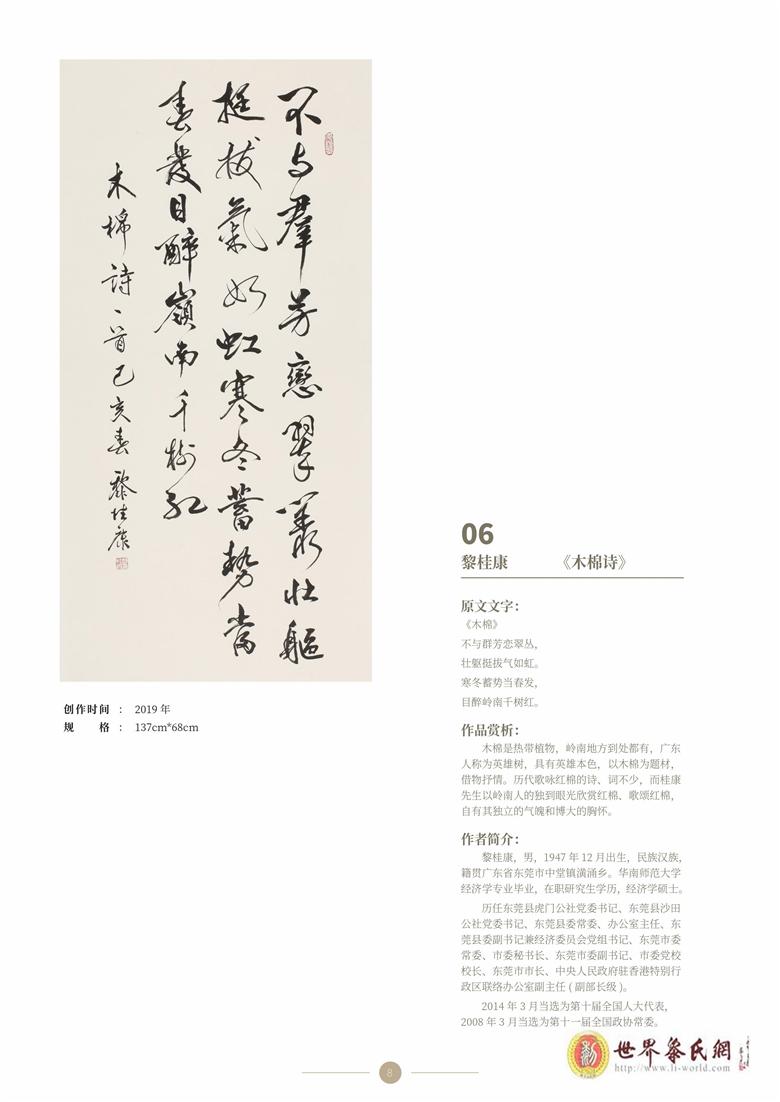 不与羣芳戀翠叢壯軀
挺拔氣如虹寒冬蓄勢當
春發目醉嶺南千樹红
木棉詩一首己亥春黎桂康
创作时间 ： 2019 年
规 格 ： 137cm*68cm
06
黎桂康 《木棉诗》
原文文字：
《木棉》
不与群芳恋翠丛，
壮躯挺拔气如虹。
寒冬蓄势当春发，
目醉岭南千树红。
作品赏析：
木棉是热带植物，岭南地方到处都有，广东
人称为英雄树，具有英雄本色，以木棉为题材，
借物抒情。历代歌咏红棉的诗、词不少，而桂康
先生以岭南人的独到眼光欣赏红棉、歌颂红棉，
自有其独立的气魄和博大的胸怀。
作者简介：
黎桂康，男，1947 年 12 月出生，民族汉族，
籍贯广东省东莞市中堂镇潢涌乡。华南师范大学
经济学专业毕业，在职研究生学历，经济学硕士。
历任东莞县虎门公社党委书记、东莞县沙田
公社党委书记、东莞县委常委、办公室主任、东
莞县委副书记兼经济委员会党组书记、东莞市委
常委、市委秘书长、东莞市委副书记、市委党校
校长、东莞市市长、中央人民政府驻香港特别行
政区联络办公室副主任 ( 副部长级 )。
2014 年 3 月当选为第十届全国人大代表，
2008 年 3 月当选为第十一届全国政协常委。
世界黎氏網
http://www.li-world.com
8